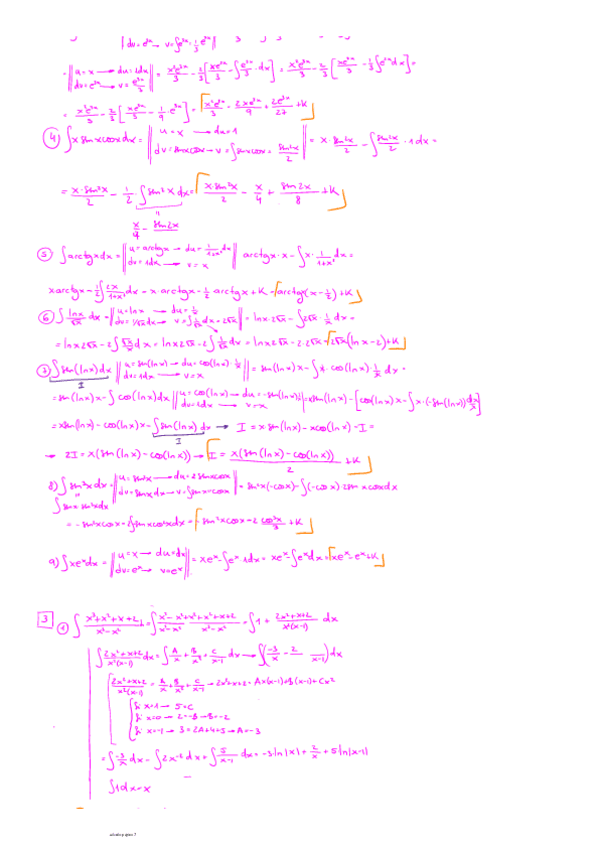 dv = e³ˣ → v = ∫e³ˣ = 1/3 e³ˣ
= ‖ u = x → du = 1dx ; dv = e³ˣ → v = e³ˣ/3 ‖ = x²e³ˣ/3 - 2/3 [ xe³ˣ/3 - ∫ e³ˣ/3 dx ] = x²e³ˣ/3 - 2/3 [ xe³ˣ/3 - 1/3 ∫e³ˣdx ] =
= x²e³ˣ/3 - 2/3 [ xe³ˣ/3 - 1/9 · e³ˣ ] = x²e³ˣ/3 - 2xe³ˣ/9 + 2e³ˣ/27 + K
④ ∫x sen x cos x dx = ‖ u = x → du = 1 ; dv = sen x cos x → v = ∫sen x cos x = sen²x/2 ‖ = x · sen²x/2 - ∫ sen²x/2 · 1dx =
= x · sen²x/2 - 1/2 · ∫ sen²x dx = x · sen²x/2 - x/4 + sen2x/8 + K
x/4 - sen2x
⑤ ∫arctgx dx = ‖ u = arctgx → du = 1/1+x² dx ; dv = 1dx → v = x ‖ arctgx · x - ∫x · 1/1+x² dx =
xarctgx - 1/2 ∫ 2x/1+x² dx = x · arctgx - 1/2 · arctgx + K = arctgx(x - 1/2) + K
⑥ ∫ lnx/√x dx = ‖ u = lnx → du = 1/x ; dv = 1/√x dx → v = ∫1/√x dx = 2√x ‖ = lnx · 2√x - ∫2√x · 1/x dx =
= lnx2√x - 2∫ √x/x dx = lnx2√x - 2∫ 1/√x dx = lnx2√x - 2 · 2√x = 2√x(lnx - 2) + K
⑦ ∫sen(lnx)dx ‖ u = sen(lnx) → du = cos(lnx) · 1/x ; dv = 1dx → v = x ‖ = sen(lnx)x - ∫x · cos(lnx) · 1/x dx =
I
= sen(lnx)x - ∫cos(lnx)dx ‖ u = cos(lnx) → du = -sen(lnx)1/x ; dv = 1dx → v = x ‖ = xsen(lnx) - [cos(lnx)x - ∫x · (-sen(lnx)) dx/x]
= xsen(lnx) - cos(lnx)x - ∫sen(lnx) dx → I = x sen(lnx) - xcos(lnx) - I =
I
→ 2I = x(sen(lnx) - cos(lnx)) → I = x(sen(lnx) - cos(lnx))/2 + K
8) ∫sen³x dx = ‖ u = sen²x → du = 2senxcosx ; dv = senx dx → v = ∫senx = cosx ‖ = sen²x(-cosx) - ∫(-cosx) 2senxcosxdx
∫senx · sen²x dx
= -sen²xcosx + 2∫senxcos²xdx = -sen²xcosx + 2 cos³x/3 + K
9) ∫xeˣdx = ‖ u = x → du = dx ; dv = eˣ → v = eˣ ‖ = xeˣ - ∫eˣ · 1dx = xeˣ - ∫eˣdx = xeˣ - eˣ + K
3 ① ∫ x³+x²+x+2/x³-x² = ∫ x³-x²+x²+x²+x+2/x³-x² = ∫ 1 + 2x²+x+2/x²(x-1) dx
∫ 2x²+x+2/x²(x-1) dx = ∫ A/x + B/x² + C/x-1 dx → ∫(-3/x - 2 /x-1)dx
2x²+x+2/x²(x-1) = A/x + B/x² + C/x-1 → 2x²+x+2 = Ax(x-1)+B(x-1)+Cx²
Si x=1 → 5=C
Si x=0 → 2=-B → B=-2
Si x=-1 → 3=2A+4+5 → A=-3
= ∫ -3/x dx - ∫2x⁻² dx + ∫ 5/x-1 dx = -3ln|x| + 2/x + 5ln|x-1|
∫1dx = x